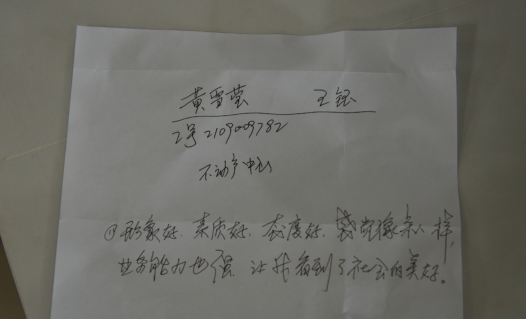 黄雪莹 王钰
2号2109009782
不动产中心
①形象好、素质好、态度好、感觉像亲人一样,
业务能力也强 让我看到了社会的美好。